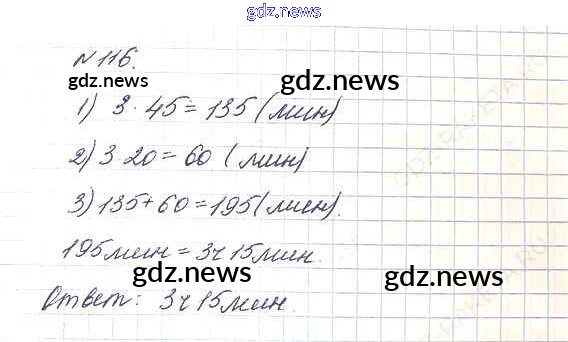 gdz.news
№ 116.
gdz.news gdz.news
1) 3 · 45 = 135 (мин)
2) 3 20 = 60 (мин)
3) 135 + 60 = 195 (мин).
195 мин = 3ч 15 мин.
gdz.news gdz.news
Ответ: 3ч 15 мин.
GDZ-RAKETA.RU